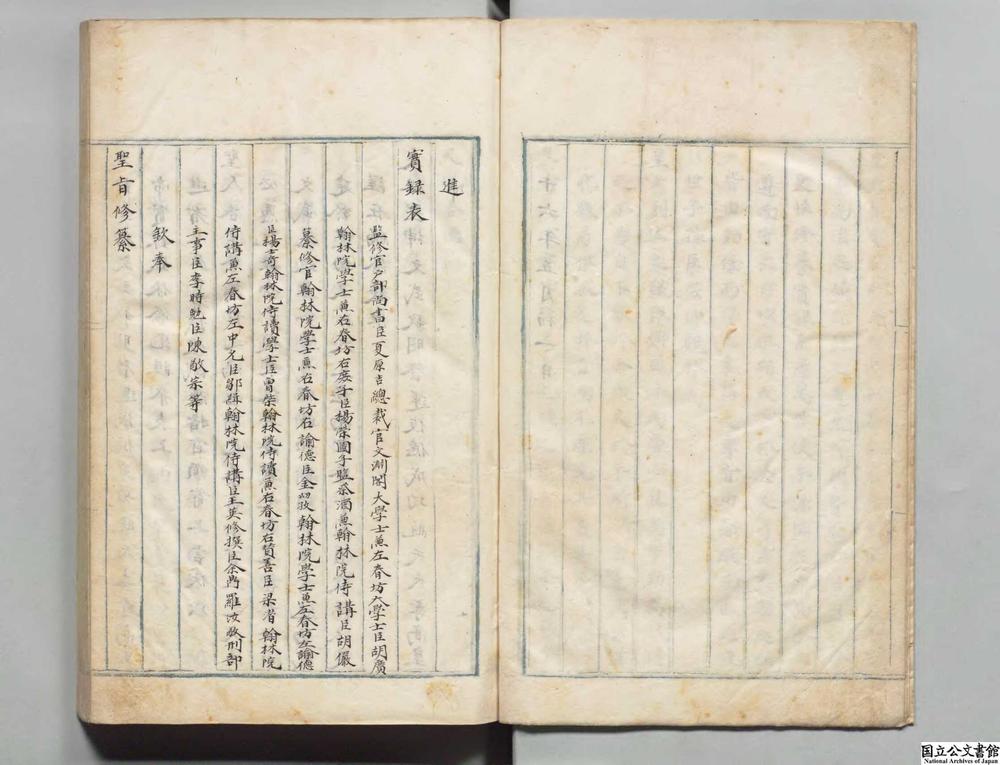 進
實録表
監修官户部尚書臣夏原吉總裁官文淵閣大學士兼左春坊大學士臣胡廣
翰林院學士兼右春坊右庶子臣楊榮國子監祭酒兼翰林院侍講臣胡儼
纂修官翰林院學士兼右春坊右諭德臣金幼孜翰林院學士兼左春坊左諭德
臣楊士奇翰林院侍讀學士臣曾棨翰林院侍讀兼右春坊右賛善臣梁潜翰林院
侍講兼左春坊左中允臣鄒緝翰林院侍講臣王英修撰臣余鼎羅汝敬刑部
主事臣李時勉臣陳敬宗等
欽奉
聖旨修纂
国立公文書館
National Archives of Japan